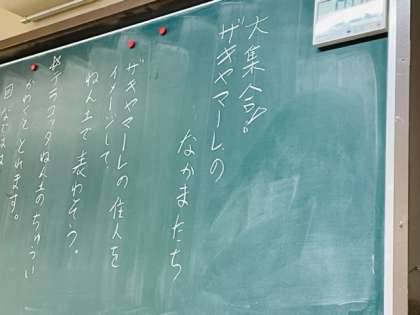 大集合!!
ザキヤマーレの
なかまたち
ザキヤマーレの住人を
イメージして
ねん土で表わそう。
※テラコッタねん土のちゅうい
かわくととれます。